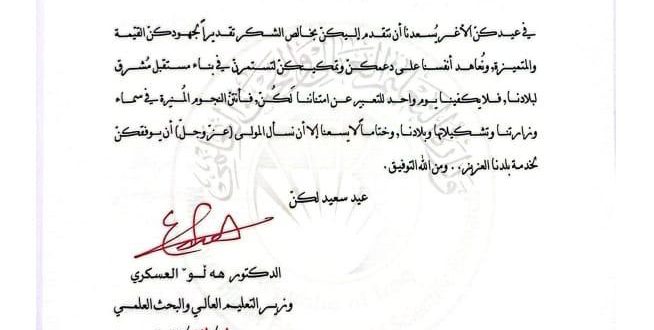 في عيدكنّ الأغر يُسعدنا أن نتقدم إليكنّ بخالص الشكر تقديراً لجهودكنّ القيّمة
والمتميزة، ونُعاهد أنفسنا على دعمكنّ وتمكينكنّ لتستمرنّ في بناء مستقبل مُشرق
لبلادنا، فلا يكفينا يوم واحد للتعبير عن امتناننا لَكُنّ، فـأنتنّ النجوم المُنيرة في سماء
وزارتنا وتشكيلاتها وبلادنا، وختاماً لا يسعنا إلا أن نسأل المولى (عزّ وجل) أن يوفقكنّ
لخدمة بلدنا العزيز.. ومن الله التوفيق.
عيد سعيد لكنّ
الدكتور هه لو العسكري
وزير التعليم العالي والبحث العلمي